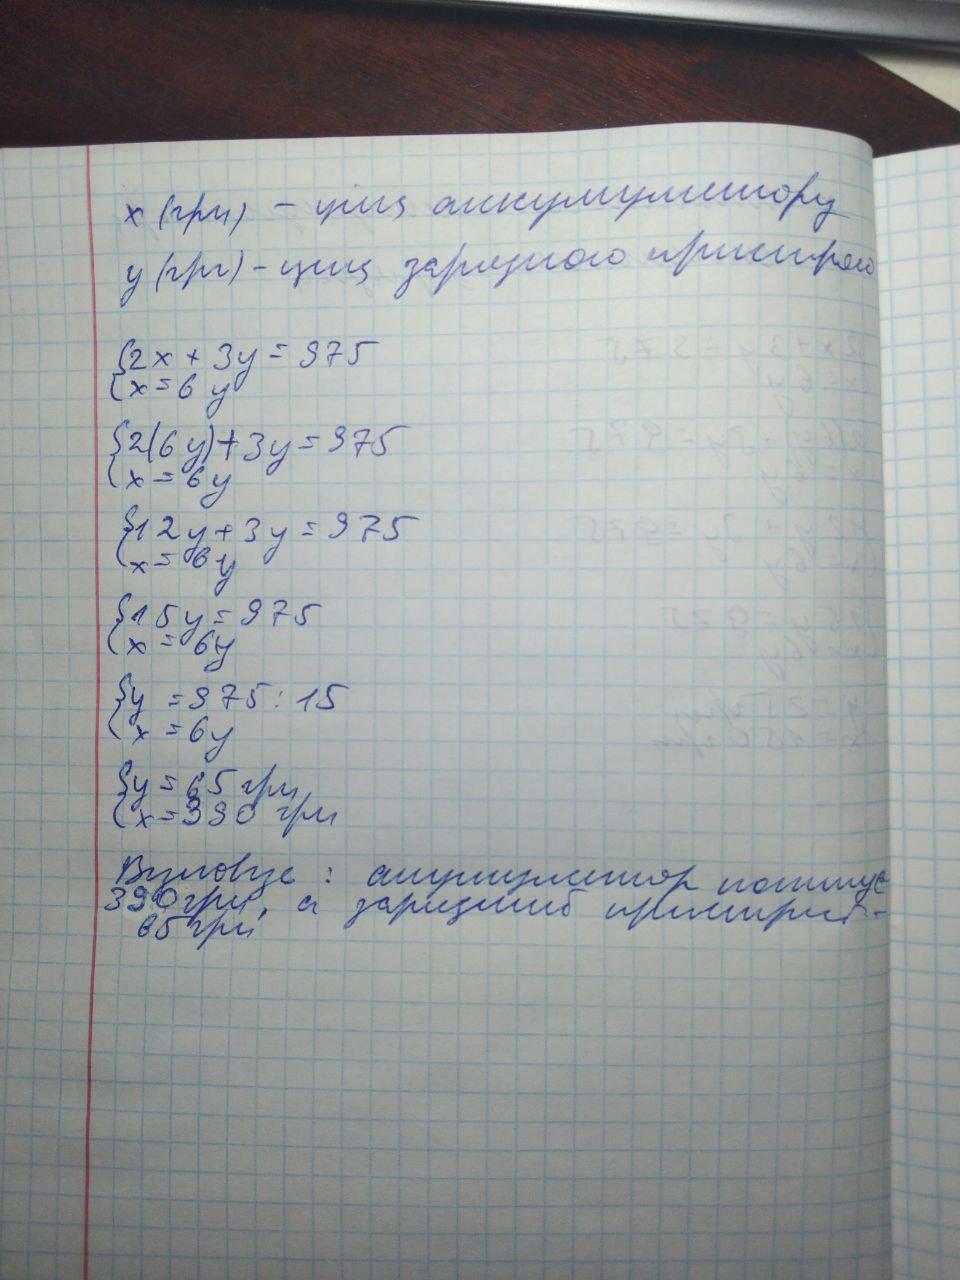 x (грн) - ціна аккумулятору
y (грн) - ціна зарядного пристрою
{2x + 3y = 975
{x = 6y
{2(6y) + 3y = 975
{x = 6y
{12y + 3y = 975
{x = 6y
{15y = 975
{x = 6y
{y = 975 : 15
{x = 6y
{y = 65 грн
{x = 390 грн
: акумулятор коштує
390 грн, а зарядний пристрій -
65 грн